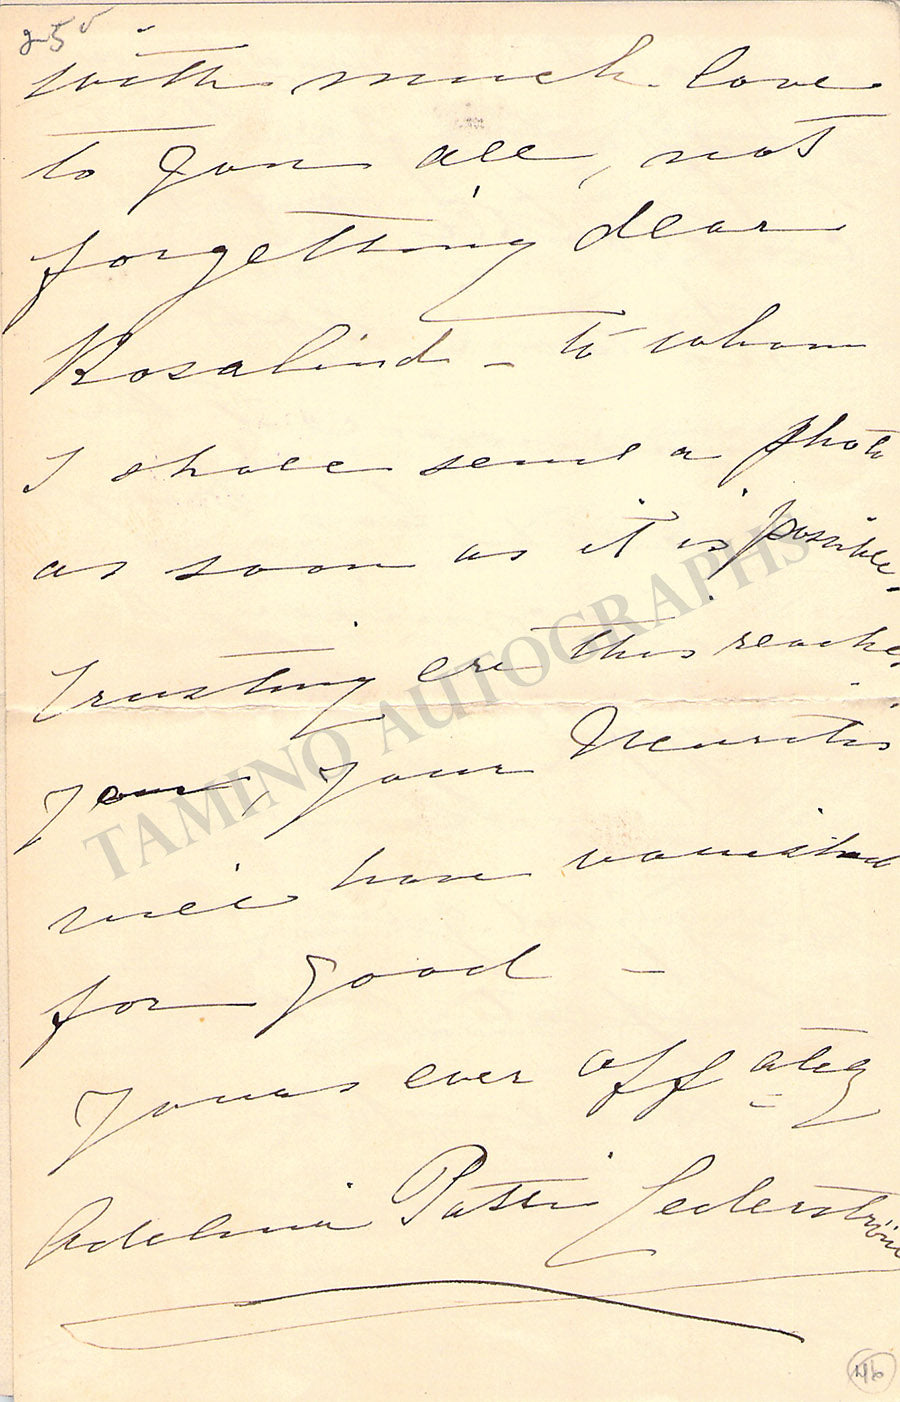 with much love
to you all, not
forgetting dear
Rosalind – to whom
I shall send a photo
as soon as it is possible,
trusting ere this reaches
you, your Neuritis
will have vanished
for good –
Yours ever affately
Adelina Patti Cederström
TAMINO AUTOGRAPHS